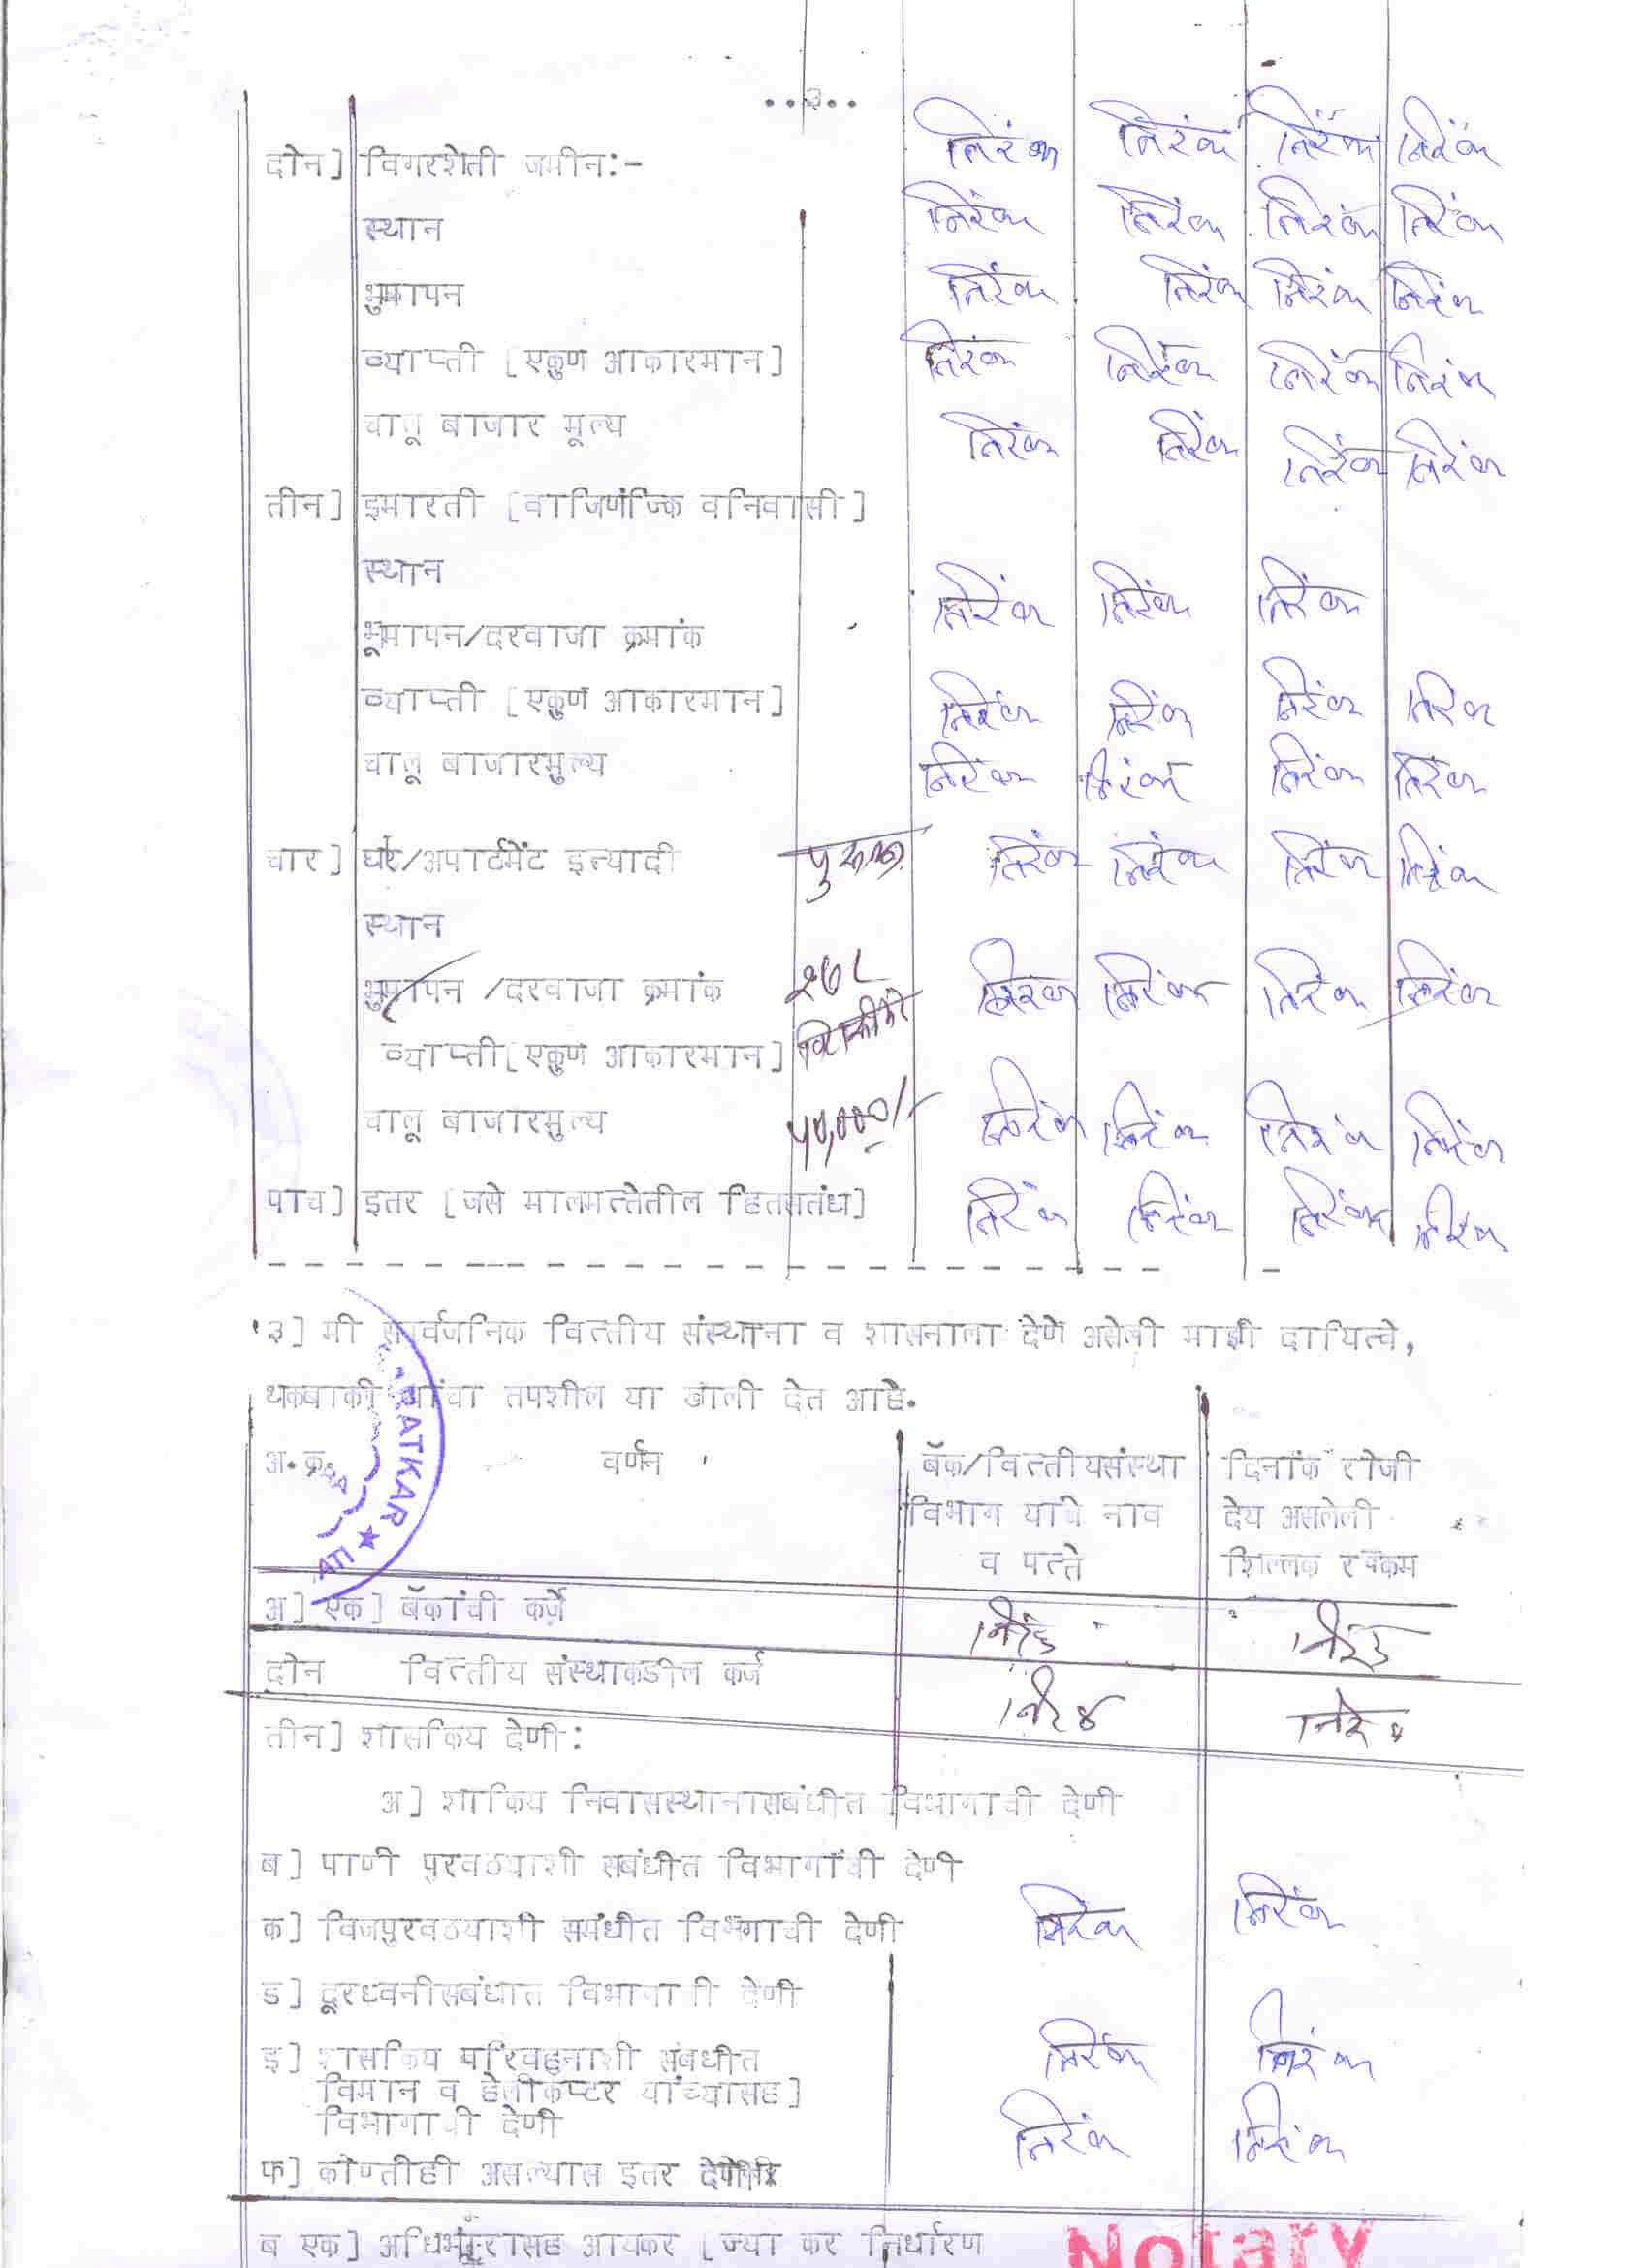 ..३..
दोन] विगरशेती जमीन:- निरंक निरंक निरंक निरंक
स्थान निरंक निरंक निरंक निरंक
भुमापन निरंक निरंक निरंक निरंक
व्याप्ती [एकुण आकारमान] निरंक निरंक निरंक निरंक
चालू बाजार मूल्य निरंक निरंक निरंक निरंक
तीन] इमारती [वाजिणंज्यिक वनिवासी]
स्थान निरंक निरंक निरंक
भूमापन/दरवाजा क्रमांक
व्याप्ती [एकुण आकारमान] निरंक निरंक निरंक निरंक
चालू बाजारमुल्य निरंक निरंक निरंक निरंक
चार] घरे/अपार्टमेंट इत्यादी निरंक निरंक निरंक निरंक
स्थान
भुमापन /दरवाजा क्रमांक निरंक निरंक निरंक निरंक
व्याप्ती[एकुण आकारमान]
चालू बाजारमुल्य निरंक निरंक निरंक निरंक
पाच] इतर [जसे मालमत्तेतील हितसतंध] निरंक निरंक निरंक निरंक
३] मी सार्वजनिक वित्तीय संस्थाना व शासनाला देणे असेली माझी दायित्वे,
थकबाकी यांचा तपशील या खाली देत आहे.
अ.क्र. वर्णन बँक/वित्तीयसंस्था दिनांक रोजी
विभाग यांचे नाव देय असलेली
व पत्ते शिल्लक रक्कम
ATKAR ★
अ] एक] बँकांची कर्जे निरंक निरंक
दोन वित्तीय संस्थाकडील कर्ज निरंक निरंक
तीन] शासकिय देणी:
अ] शाकिय निवासस्थानासबंधीत विभागाची देणी
ब] पाणी पुरवठ्याशी सबंधीत विभागांची देणी
क] विजपुरवठ्याशी समंधीत विभगाची देणी निरंक निरंक
ड] दूरध्वनीसबंधात विभागाची देणी
इ] शासकिय परिवहनाशी संबधीत निरंक निरंक
विमान व हेलीकप्टर यांच्यासह]
विभागाची देणी निरंक निरंक
फ] कोणतीही असल्यास इतर
ब एक] आयकर [ज्या कर निर्धारण
Notary